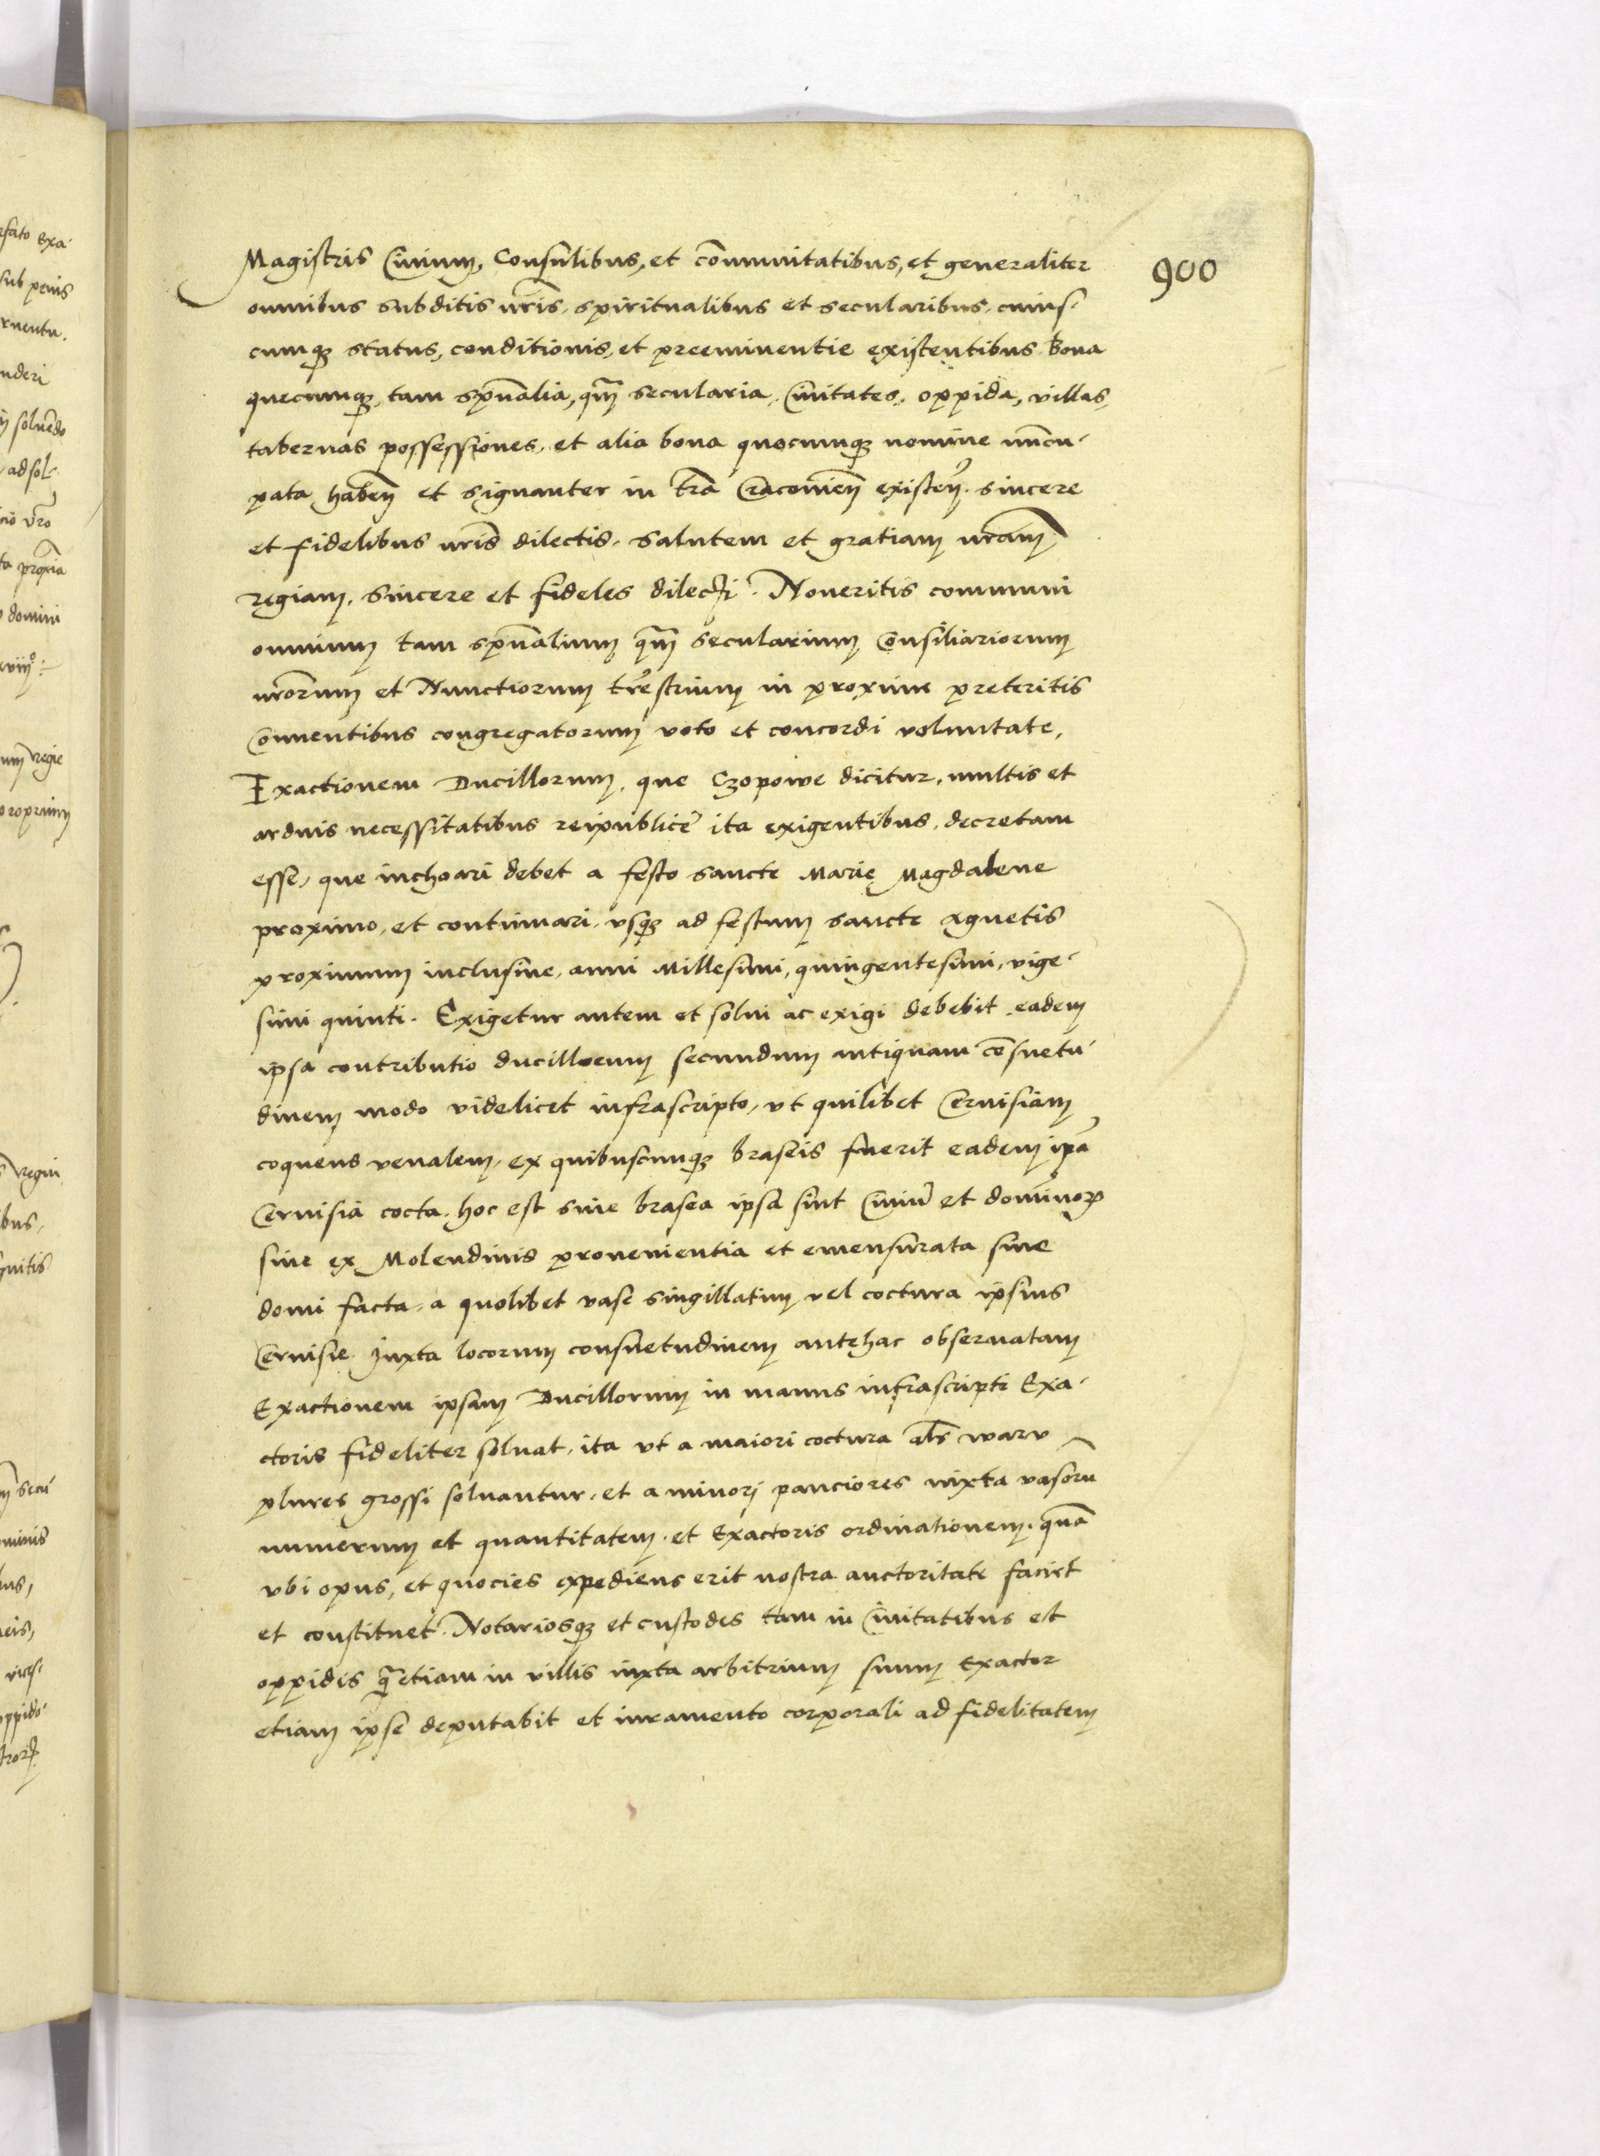 900
Magistris Ciuium, Consulibus, et cõmunitatibus, et generaliter
omnibus subditis nr̃is, spiritualibus et secularibus, cuius-
cumqꝫ status, conditionis, et preeminentie existentibus Bona
quecumqꝫ, tam spũalia, qm̃ secularia, Ciuitates, oppida, villas,
tabernas possessiones, et alia bona quocumqꝫ nomine nuncu-
pata habeñ et signanter in tr̃a Cracouieñ existeñ. sincere
et fidelibus nr̃is dilectis, salutem et gratiam nr̃am
regiam. Sincere et fideles dilecti. Noueritis communi
omnium tam spũalium qm̃ secularium Consiliariorum
nr̃orum et Nunctiorum tr̃estrium in proxime preteritis
Conuentibus congregatorum voto et concordi voluntate,
Exactionem Ducillorum, que Czopowe dicitur, multis et
arduis necessitatibus reipublice ita exigentibus, decretam
esse, que inchoari debet a festo sancte Marię Magdalene
proximo, et continuari, vsqꝫ ad festum sancte Agnetis
proximum inclusiue, anni Millesimi, quingentesimi, vige-
simi quinti. Exigetur autem et solui ac exigi debebit eadem
ipsa contributio ducillorum secundum antiquam cõsuetu-
dinem modo videlicet infrascripto, vt quilibet Ceruisiam
coquens venalem, ex quibuscumqꝫ braseis fuerit eadem ip̃a
Ceruisia cocta, hoc est siue brasea ipsa sint Ciuiũ et dominoꝝ
siue ex Molendinis prouenientia et emensurata siue
domi facta, a quolibet vase singillatim vel coctura ipsius
Ceruisie Juxta locorum consuetudinem antehac obseruatam
Exactionem ipsam Ducillorum in manus infrascripti Exa-
ctoris fideliter soluat, ita vt a maiori coctura al̃s waru
plures grossi soluantur, et a minori pauciores iuxta vasorũ
numerum et quantitatem, et Exactoris ordinationem, quã
vbi opus, et quocies expediens erit nostra auctoritate faciet
et constituet. Notariosqꝫ et custodes tam in Ciuitatibus et
oppidis q̃ etiam in villis iuxta arbitrium suum Exactor
etiam ipse deputabit et iuramento corporali ad fidelitatem